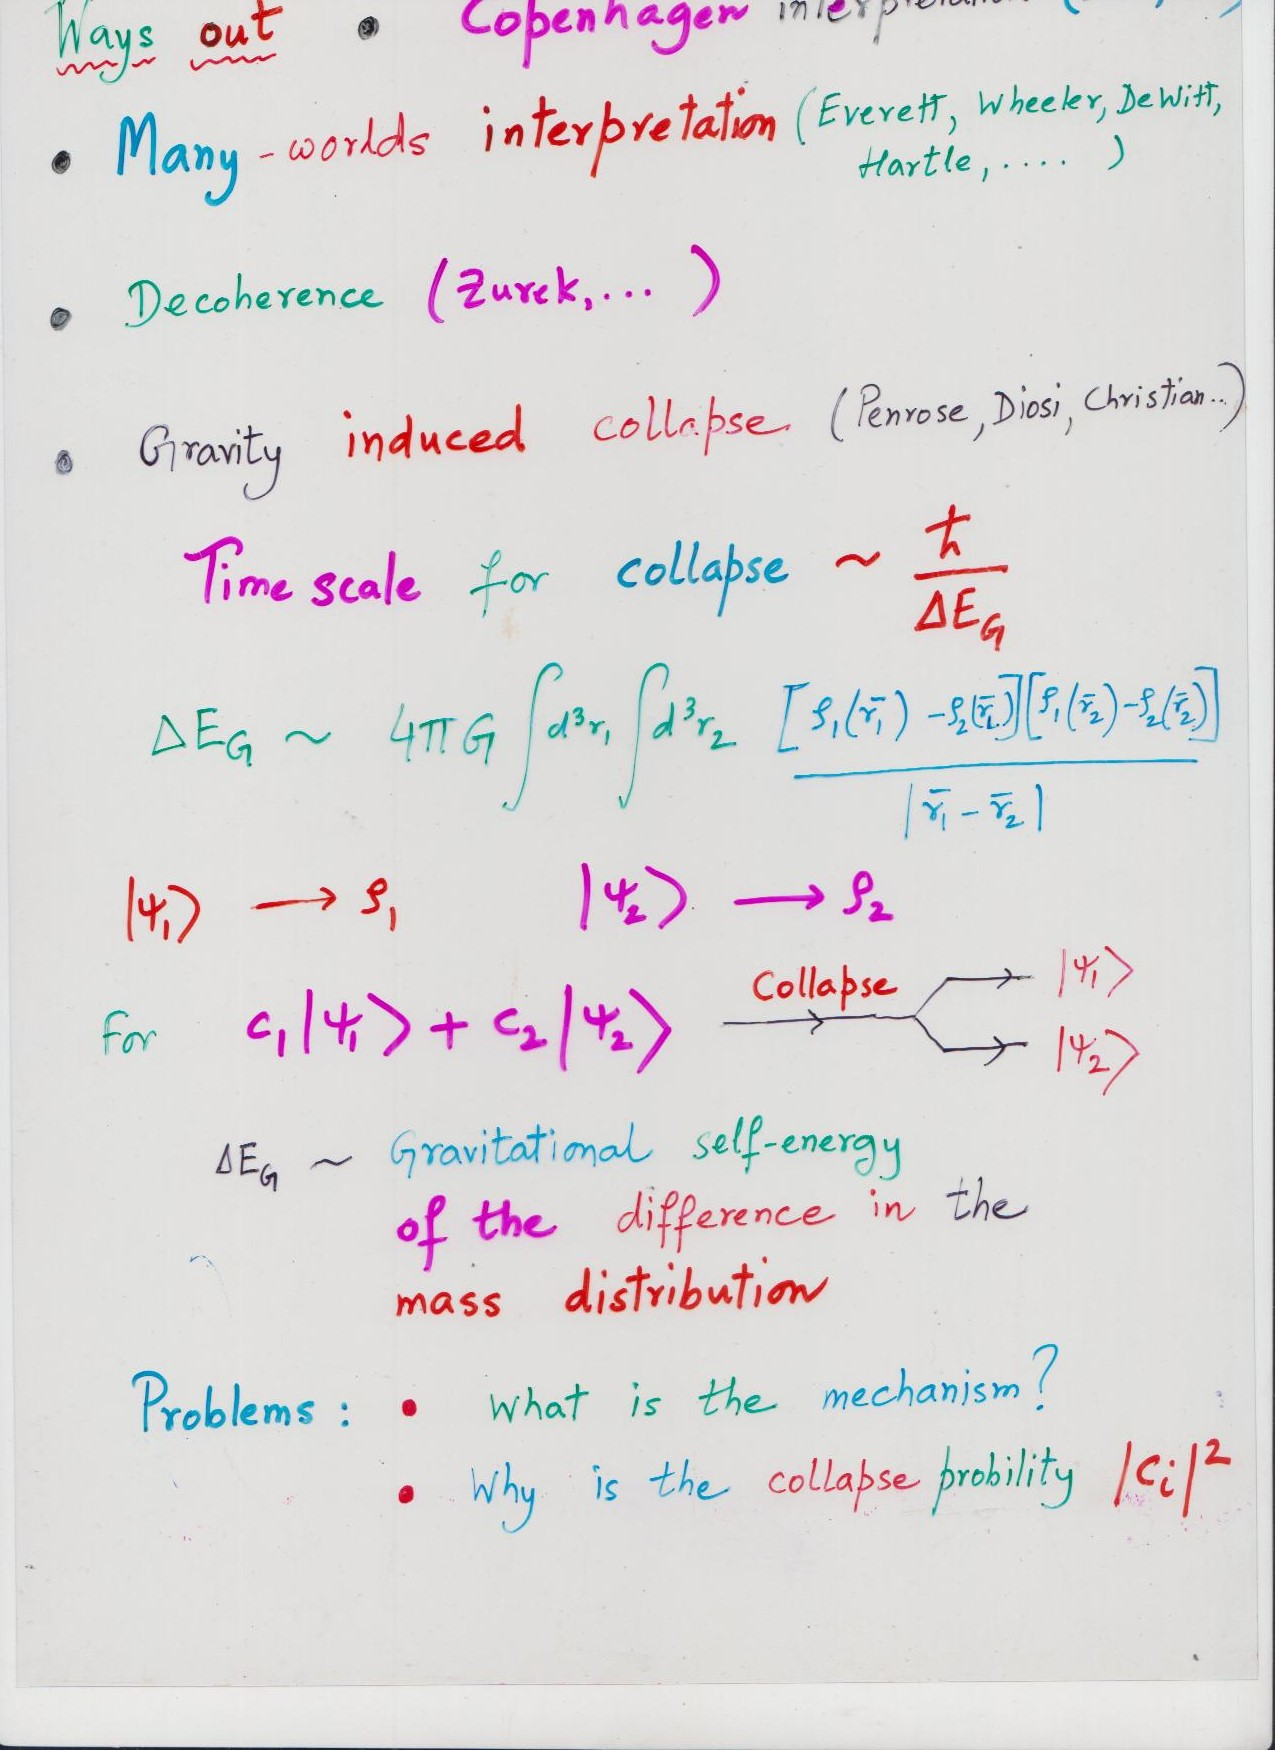 Ways out • Copenhagen interpretation (
• Many-worlds interpretation (Everett, Wheeler, DeWitt,
Hartle, .... )
• Decoherence (Zurek, ... )
• Gravity induced collapse (Penrose, Diosi, Christian..)
Time scale for collapse ~ ħ / ΔE_G
ΔE_G ~ 4πG ∫d³r₁ ∫d³r₂ [ρ₁(r̄₁) - ρ₂(r̄₁)][ρ₁(r̄₂) - ρ₂(r̄₂)] / |r̄₁ - r̄₂|
|ψ₁⟩ → ρ₁ |ψ₂⟩ → ρ₂
For c₁|ψ₁⟩ + c₂|ψ₂⟩ Collapse → |ψ₁⟩
|ψ₂⟩
ΔE_G ~ Gravitational self-energy
of the difference in the
mass distribution
Problems : • What is the mechanism?
• Why is the collapse probility |cᵢ|²